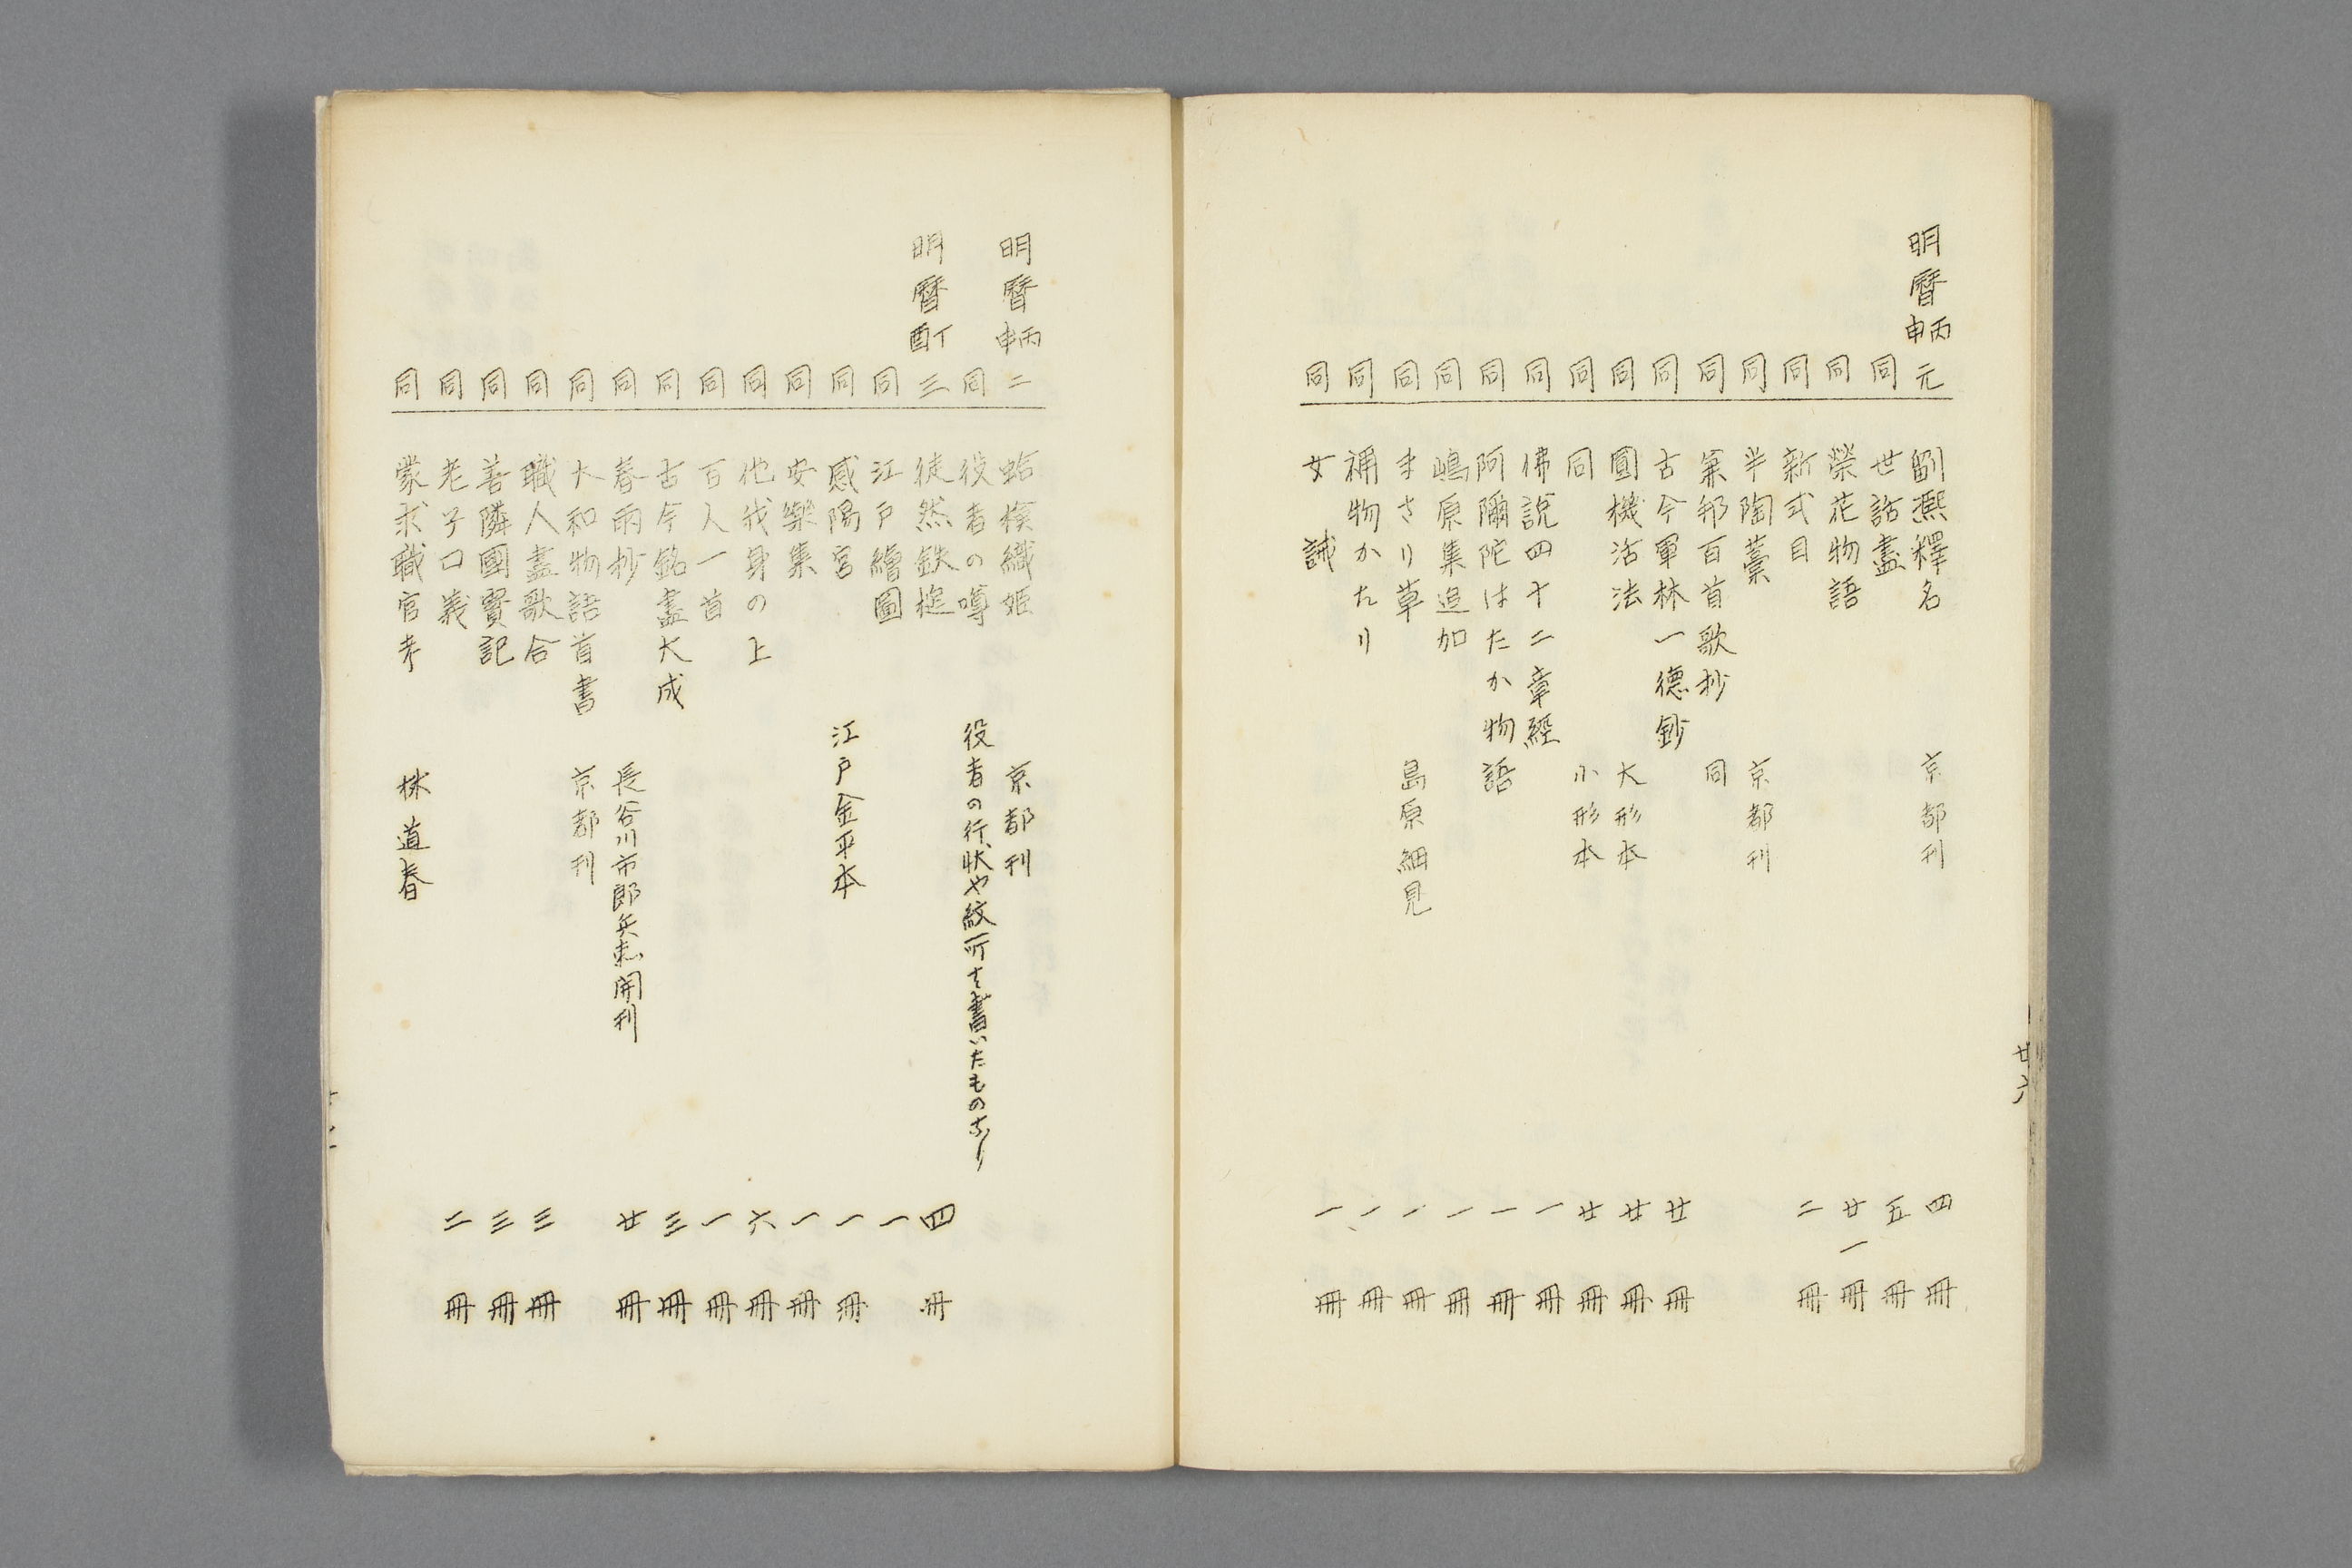 明暦丙申元 劉熙釋名 京都刊 四冊
同 世話盡 五冊
同 榮花物語 廿一冊
同 新式目 二冊
同 半陶藁 京都刊
同 兼邦百首歌抄 同
同 古今軍林一德鈔 廿冊
同 圓機活法 大形本 廿冊
同 同 小形本 廿冊
同 佛説四十二章經 一冊
同 阿彌陀はたか物語 一冊
同 嶋原集追加 一冊
同 まさり草 島原細見 一冊
同 物かたり 一冊
同 女誡 一冊
廿六
明暦丙申二 蛤織姫 京都刊
同 役者の噂 役者の行状や紋所を書いたものなり
明暦丁酉三 徒然鉄槌 四冊
同 江戸繪圖 一
同 感陽宮 江戸金平本 一冊
同 安樂集 一冊
同 他我身の上 六冊
同 百人一首 一冊
同 古今銘盡大成 三冊
同 春雨抄 長谷川市郎兵衛開刊 廿冊
同 大和物語首書 京都刊
同 職人盡歌合 三冊
同 善隣國寶記 三冊
同 老子口義 二冊
同 蒙求職官考 林道春